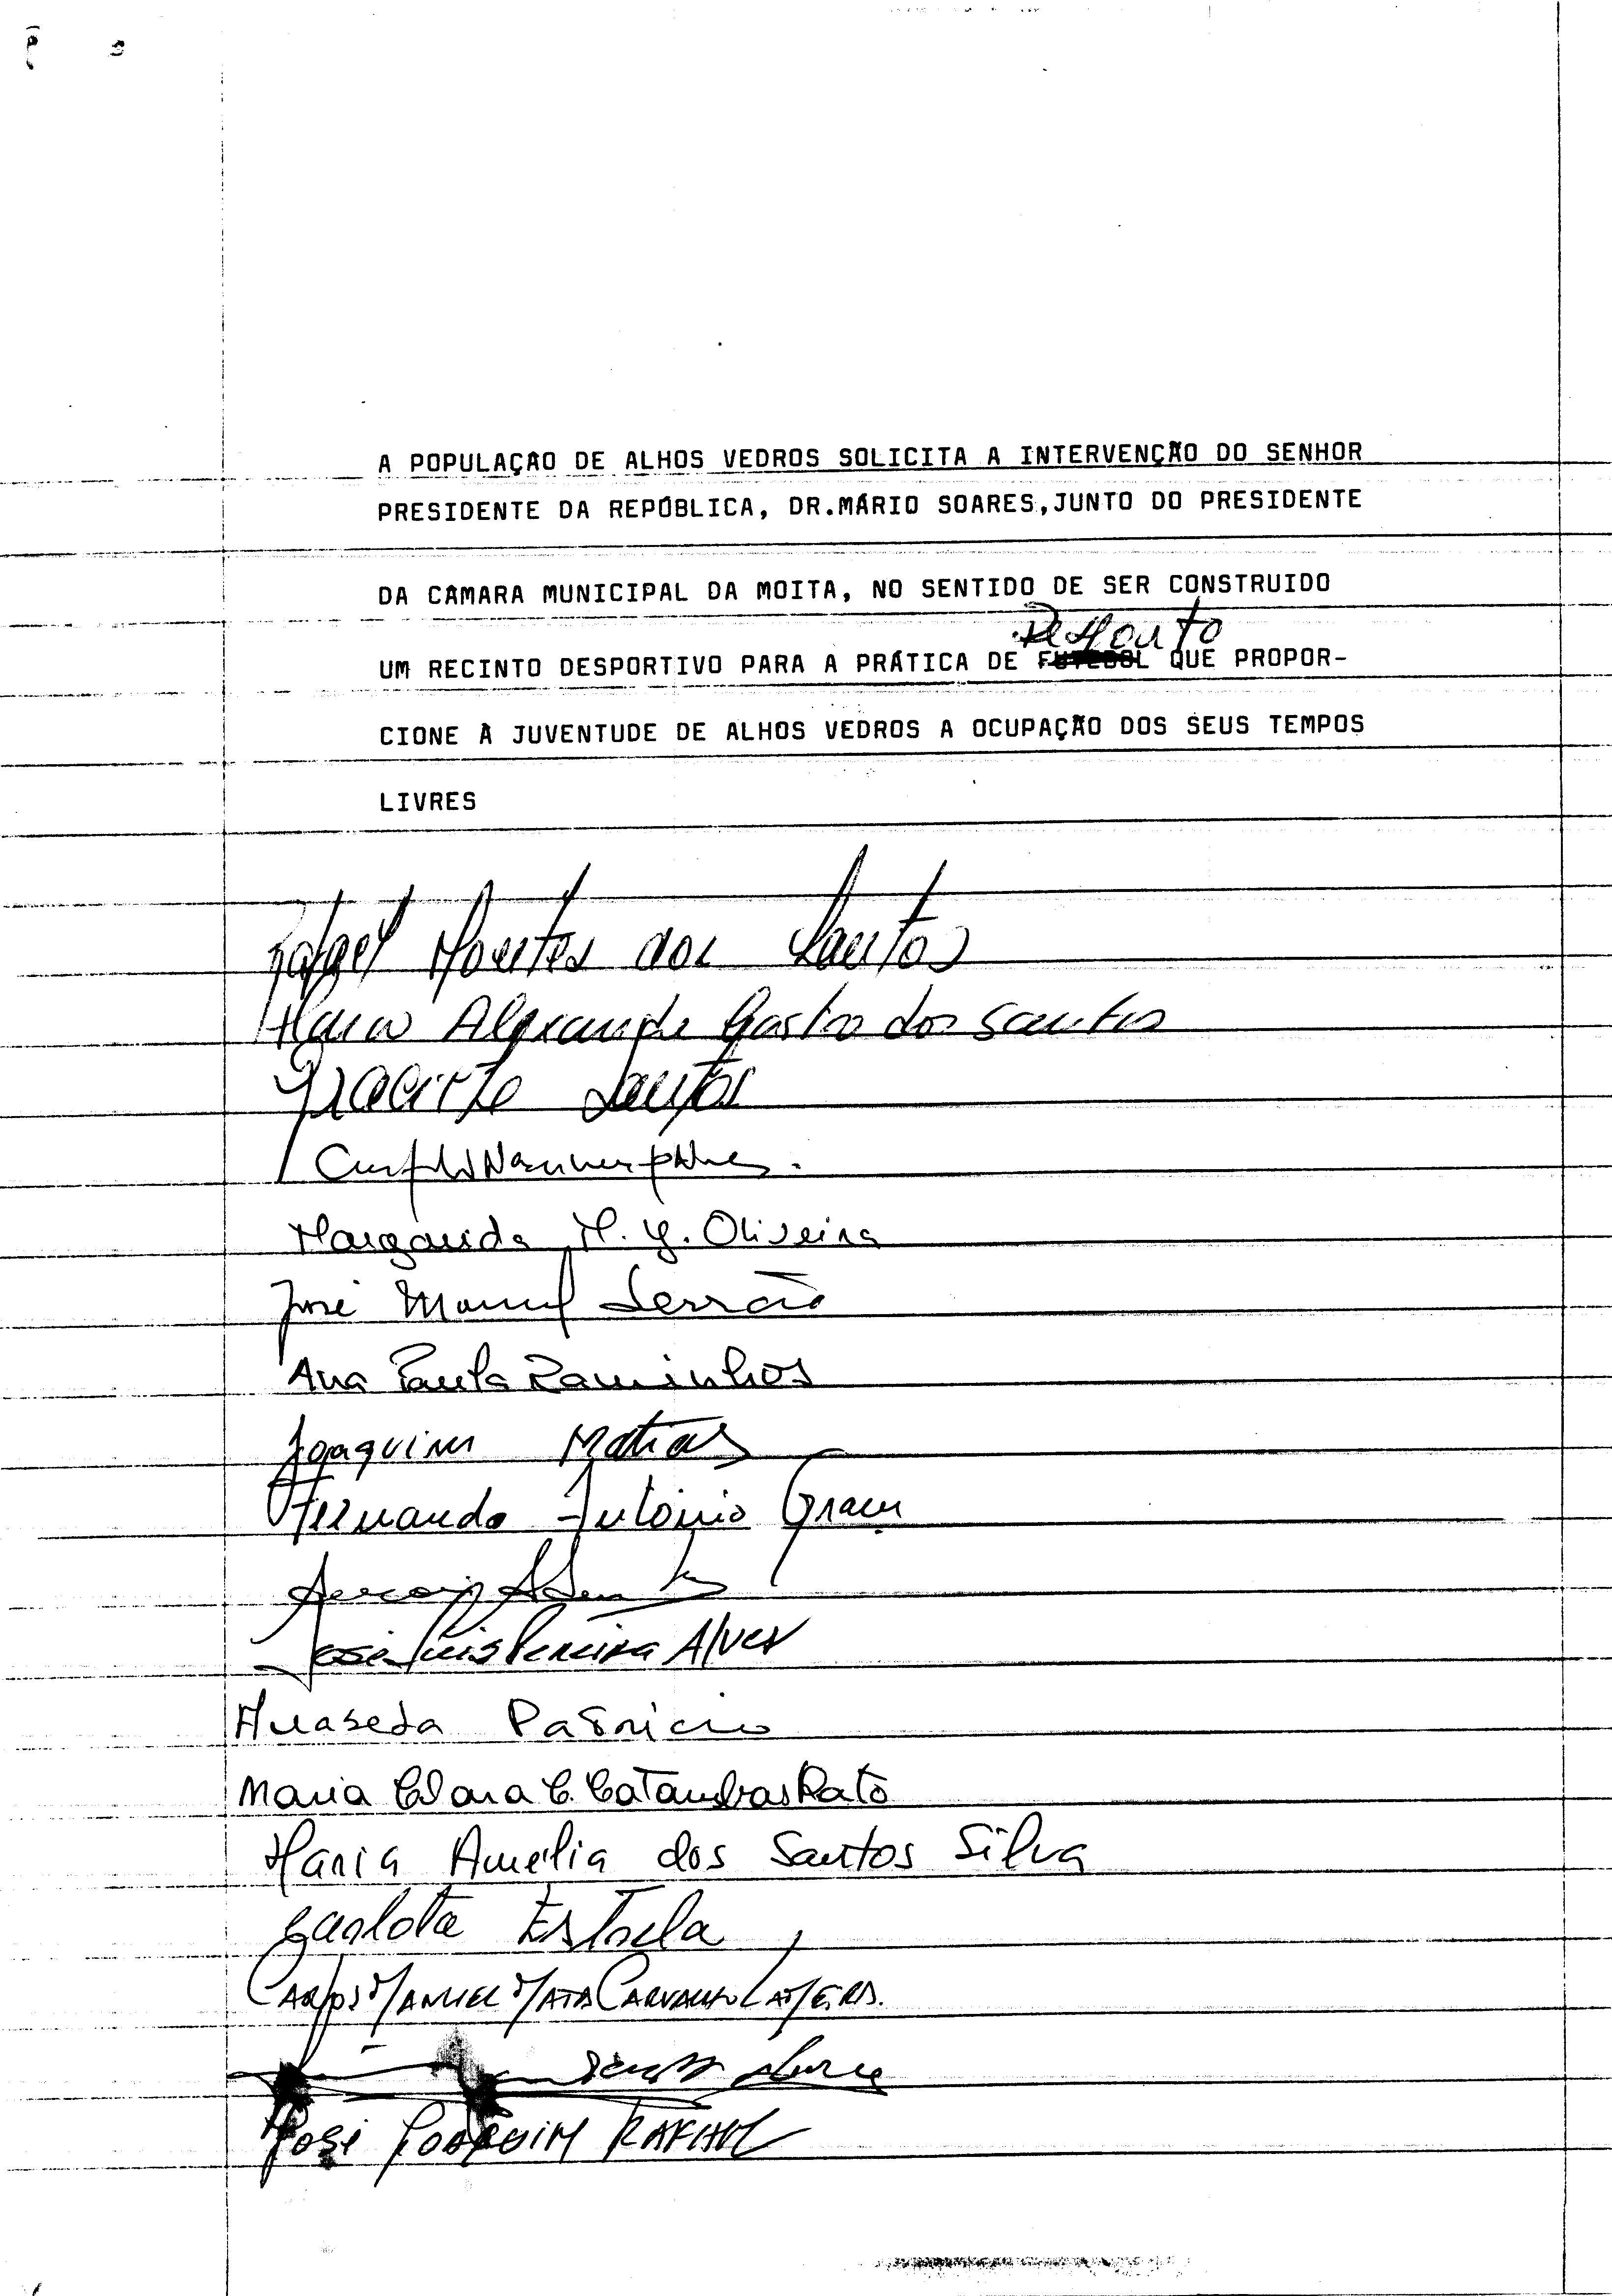 A POPULAÇÃO DE ALHOS VEDROS SOLICITA A INTERVENÇÃO DO SENHOR
PRESIDENTE DA REPÚBLICA, DR.MÁRIO SOARES,JUNTO DO PRESIDENTE
DA CÂMARA MUNICIPAL DA MOITA, NO SENTIDO DE SER CONSTRUIDO
UM RECINTO DESPORTIVO PARA A PRÁTICA DE FUTEBOL QUE PROPOR-
CIONE À JUVENTUDE DE ALHOS VEDROS A OCUPAÇÃO DOS SEUS TEMPOS
LIVRES
dos Santos
dos Santos
Santos
Margarida M. G. Oliveira
José Manuel Serrão
Ana Paula Raminhos
Joaquim Matias
Fernando António
José Luis Pereira Alves
Patricio
Maria Clara C. Catambas Rato
Maria Amélia dos Santos Silva
Carlota Estrela
Carlos Manuel Mata Carvalho
José Joaquim Rafael